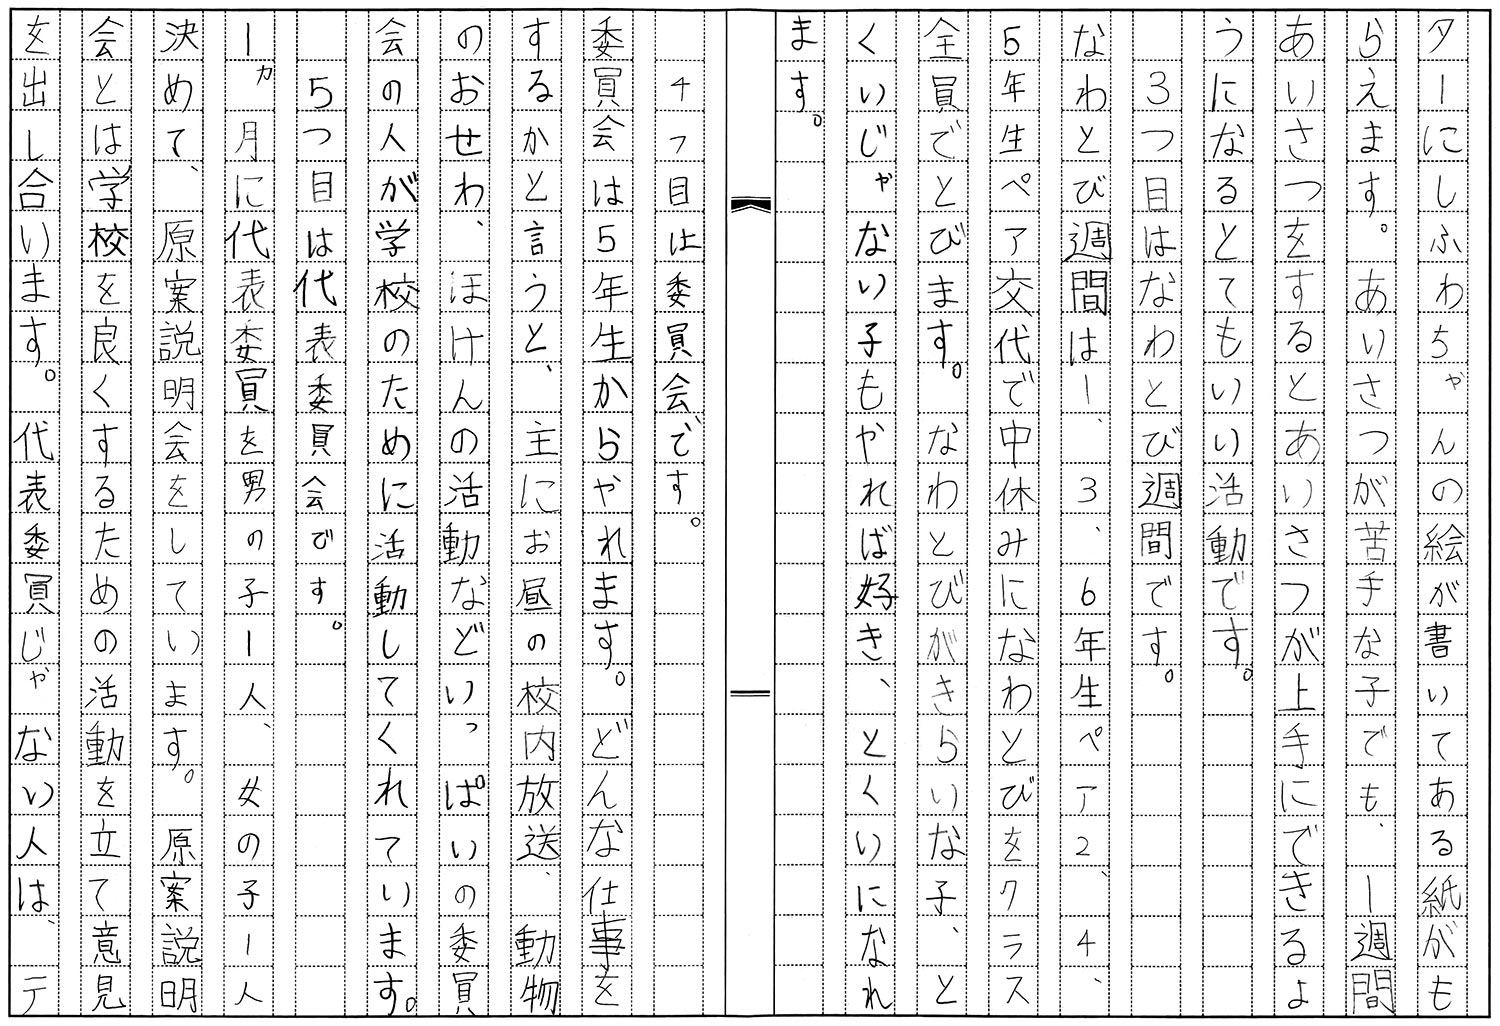 ターにしふわちゃんの絵が書いてある紙がも
らえます。あいさつが苦手な子でも、一週間
あいさつをするとあいさつが上手にできるよ
うになるとてもいい活動です。
3つ目はなわとび週間です。
なわとび週間は1、3、6年生ペア2、4、
5年生ペア交代で中休みになわとびをクラス
全員でとびます。なわとびがきらいな子、と
くいじゃない子もやれば好き、とくいになれ
ます。
4つ目は委員会です。
委員会は5年生からやれます。どんな仕事を
するかと言うと、主にお昼の校内放送、動物
のおせわ、ほけんの活動などいっぱいの委員
会の人が学校のために活動してくれています。
5つ目は代表委員会です。
1ヵ月に代表委員を男の子1人、女の子1人
決めて、原案説明会をしています。原案説明
会とは学校を良くするための活動を立て意見
を出し合います。代表委員じゃない人は、テ